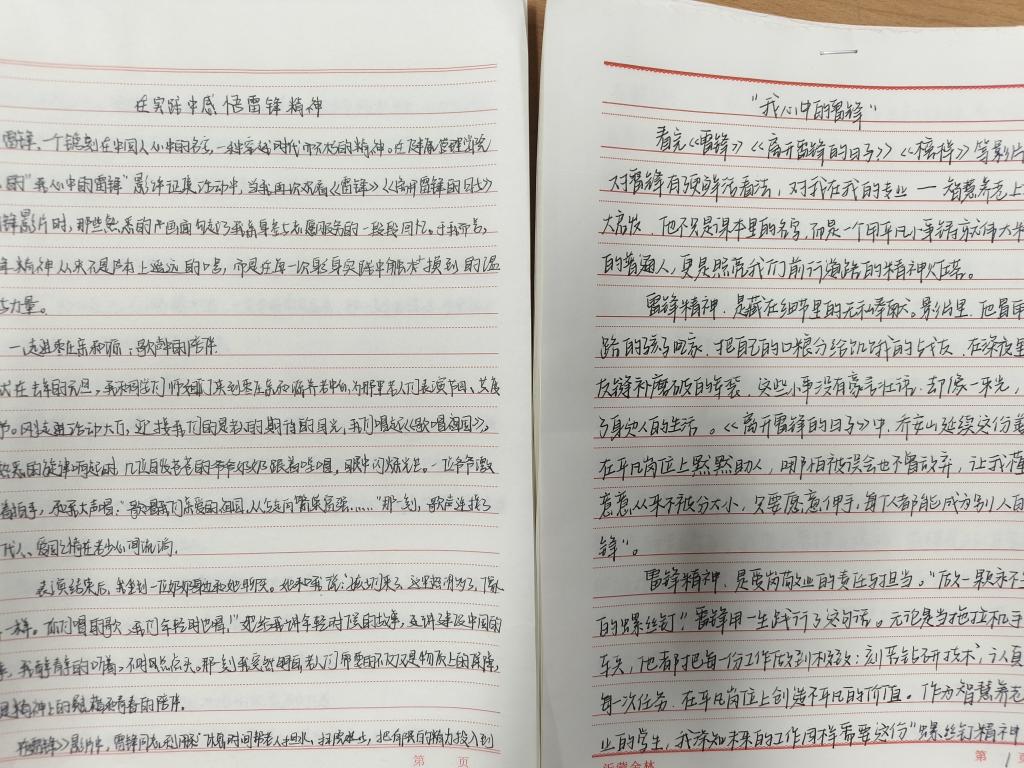 在实践中感悟雷锋精神
雷锋,一个镌刻在中国人心中的名字,一种穿越时代而不朽的精神。在健康管理学院
的“我心中的雷锋”影评征集活动中,当我再次观看《雷锋》《离开雷锋的日子》
锋影片时,那些熟悉的画面勾起了我亲身参与志愿服务的一段段回忆。于我而言,
精神从来不是纸上遥远的口号,而是在每一次躬身实践中触摸到的温
与力量。
一、走进枣庄亲和源:歌声的陪伴
在去年的元旦,我和同学们
表演节目、共度
节。刚走进活动大厅,迎接我们的是老人的期待的目光,我们唱起《歌唱祖国》。
熟悉的旋律响起时,几位白发苍苍的爷爷奶奶跟着哼唱,眼中闪烁光芒。一位爷爷激
着拍手,还和我大声唱:“歌唱我们亲爱的祖国,从今走向繁荣富强……”那一刻,歌声连接了
代人、爱国之情在老少心间流淌。
表演结束后,我坐到一位奶奶身边和她聊天。她和我说:“孩子们来了,这里热闹了,像
一样。你们唱的歌,我们年轻时也唱!”她给我讲年轻时候的故事,
中国的
,我静静的听着,不时点点头。那一刻我突然明白老人们需要的不仅仅是物质上的保障,
是精神上的慰藉和青春的陪伴。
在《雷锋》影片中,雷锋同志利用休息时间帮老人挑水、扫院
,把有限的精力投入到
第 页
“我心中的雷锋”
看完《雷锋》《离开雷锋的日子》《榜样》等影片
对雷锋有颁鲜活看法,对我在我的专业一智慧养老上
大启发,他不只是课本里的名字,而是一个用平凡小事铸就伟大
的普通人,更是照亮我们前行道路的精神灯塔。
雷锋精神,是藏在细节里的无私奉献。影片里,他冒雨
路的孩子回家,把自己的口粮分给饥饿的战友,在深夜里
友缝补磨破的军装,这些小事没有豪言壮语,却像一束光,
了身边人的生活。《离开雷锋的日子》中,乔安山延续这份善
在平凡岗位上默默助人,哪怕被误会也不曾放弃,让我懂
善意从来不被分大小,只要愿意伸手,每个人都能成为别人的
锋”。
雷锋精神,是爱岗敬业的责任与担当。“做一颗永不生
的螺丝钉”雷锋用一生践行了这句话。无论是当拖拉机手
车兵,他都把每一份工作做到极致:刻苦钻研技术,认真
每一次任务,在平凡岗位上创造不平凡的价值。作为智慧养老
业的学生,我深知未来的工作同样需要这份“螺丝钉精神
沂蒙金林
第 1 页